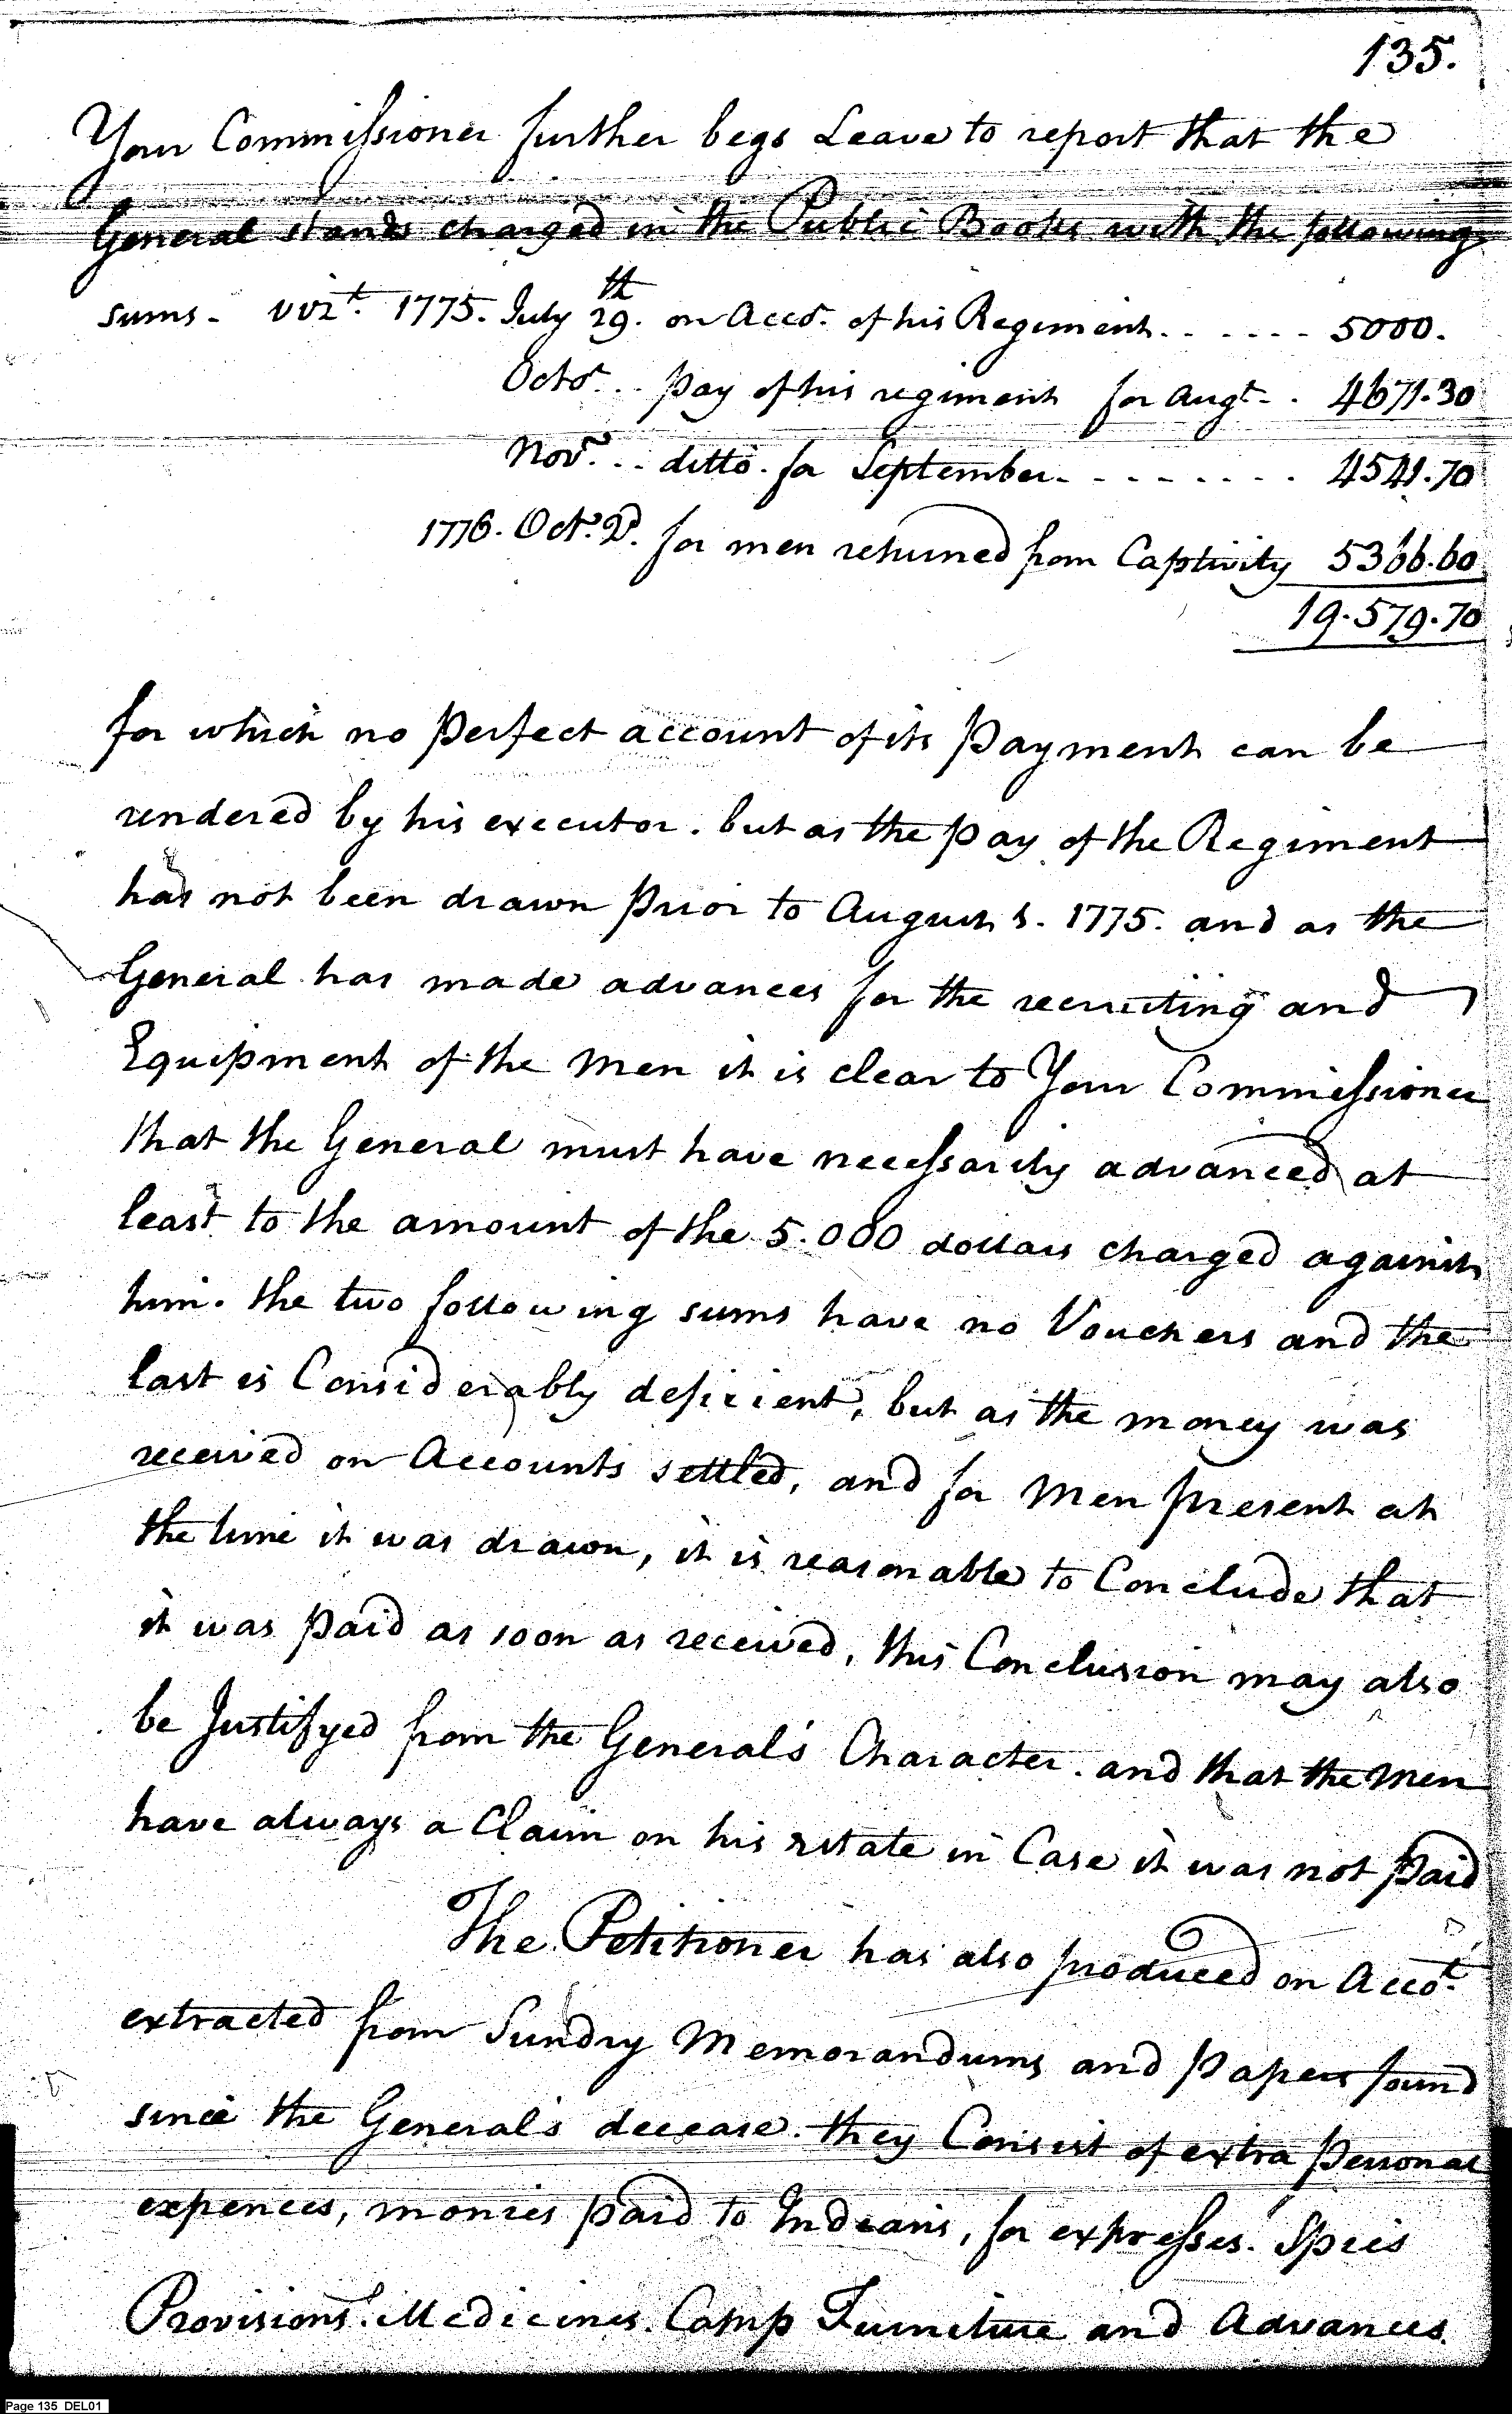 135.
Your Commissioner further begs Leave to report that the
General stands charged in the Public Books with the following
sums - vizt. 1775. July 29th. on Acco. of his Regiment. . . . . . 5000.
Octo. . . pay of his regiment for Augt - . 4671.30
Novr. . . ditto. for September. . . . . . . . 4541.70
1776. Octr. 2d. for men returned from Captivity 5366.60
19.579.70
for which no perfect account of its payment can be
rendered by his executor. but as the pay of the Regiment
has not been drawn prior to August 1. 1775. and as the
General has made advances for the recruiting and
Equipment of the Men it is clear to Your Commissioner
that the General must have necessarily advanced at
least to the amount of the 5.000 dollars charged against
him. the two following sums have no Vouchers and the
last is Considerably deficient, but as the money was
received on Accounts settled, and for Men present at
the time it was drawn, it is reasonable to Conclude that
it was paid as soon as received, this Conclusion may also
be Justifyed from the General's Character. and that the Men
have always a Claim on his estate in Case it was not paid
The Petitioner has also produced on Accot.
extracted from Sundry Memorandums and papers found
since the General's decease. they Consist of extra personal
expences, monies paid to Indians, for expresses. Spies
Provisions. Medicines. Camp Furniture and Advances.
Page 135 DEL01